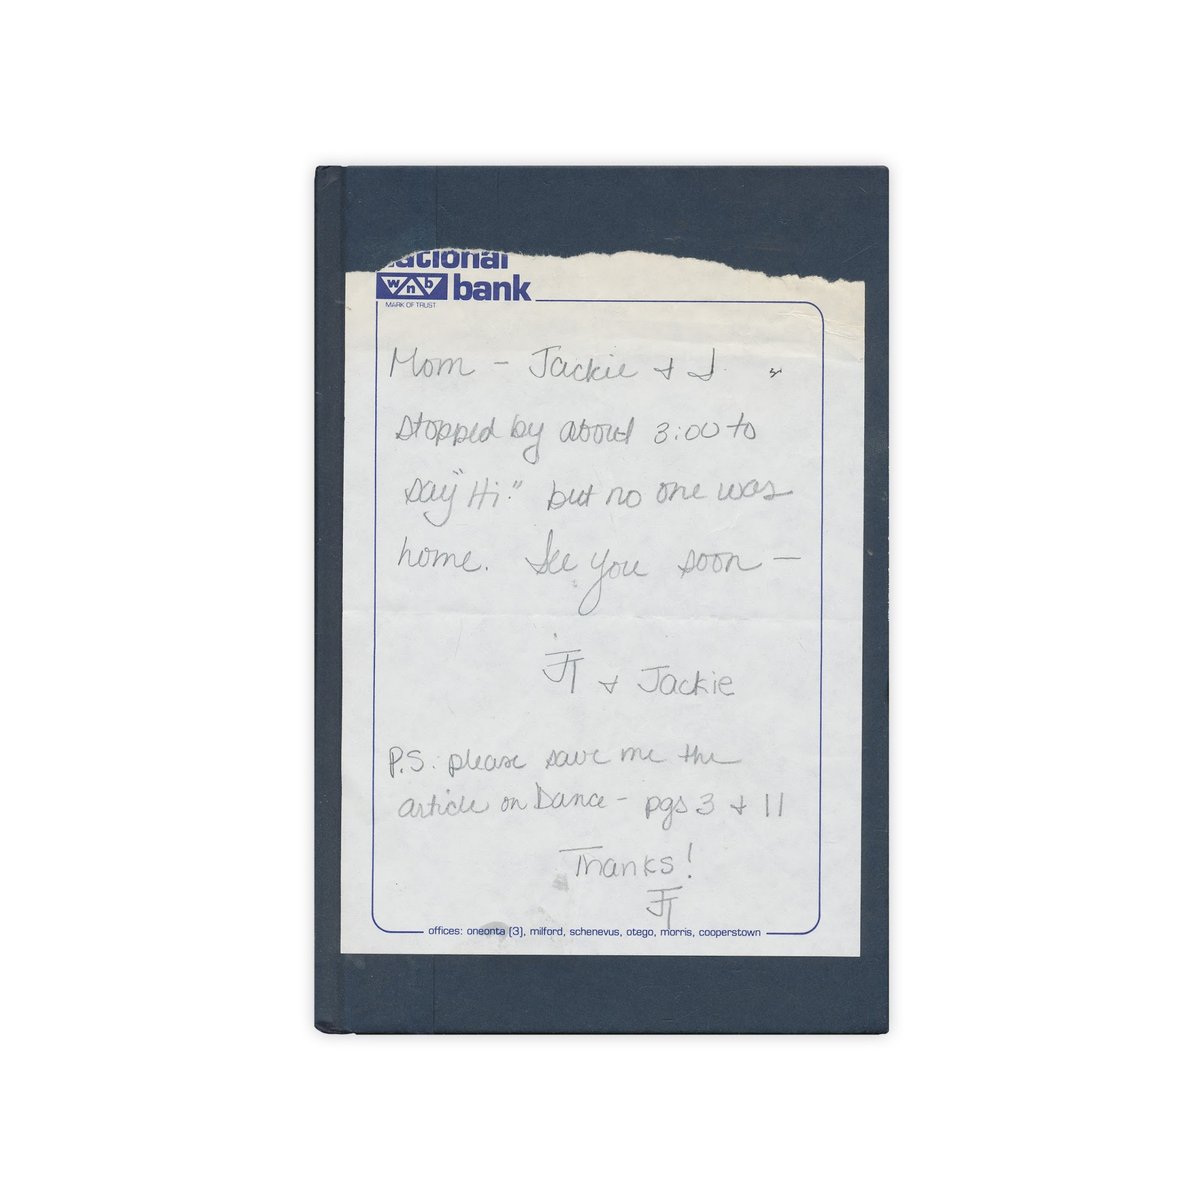 national
wnb bank
MARK OF TRUST
Mom – Jackie & I
stopped by about 3:00 to
say "Hi." but no one was
home. See you soon –
JT & Jackie
P.S. please save me the
article on Dance – pgs 3 & 11
Thanks!
JT
offices: oneonta (3), milford, schenevus, otego, morris, cooperstown